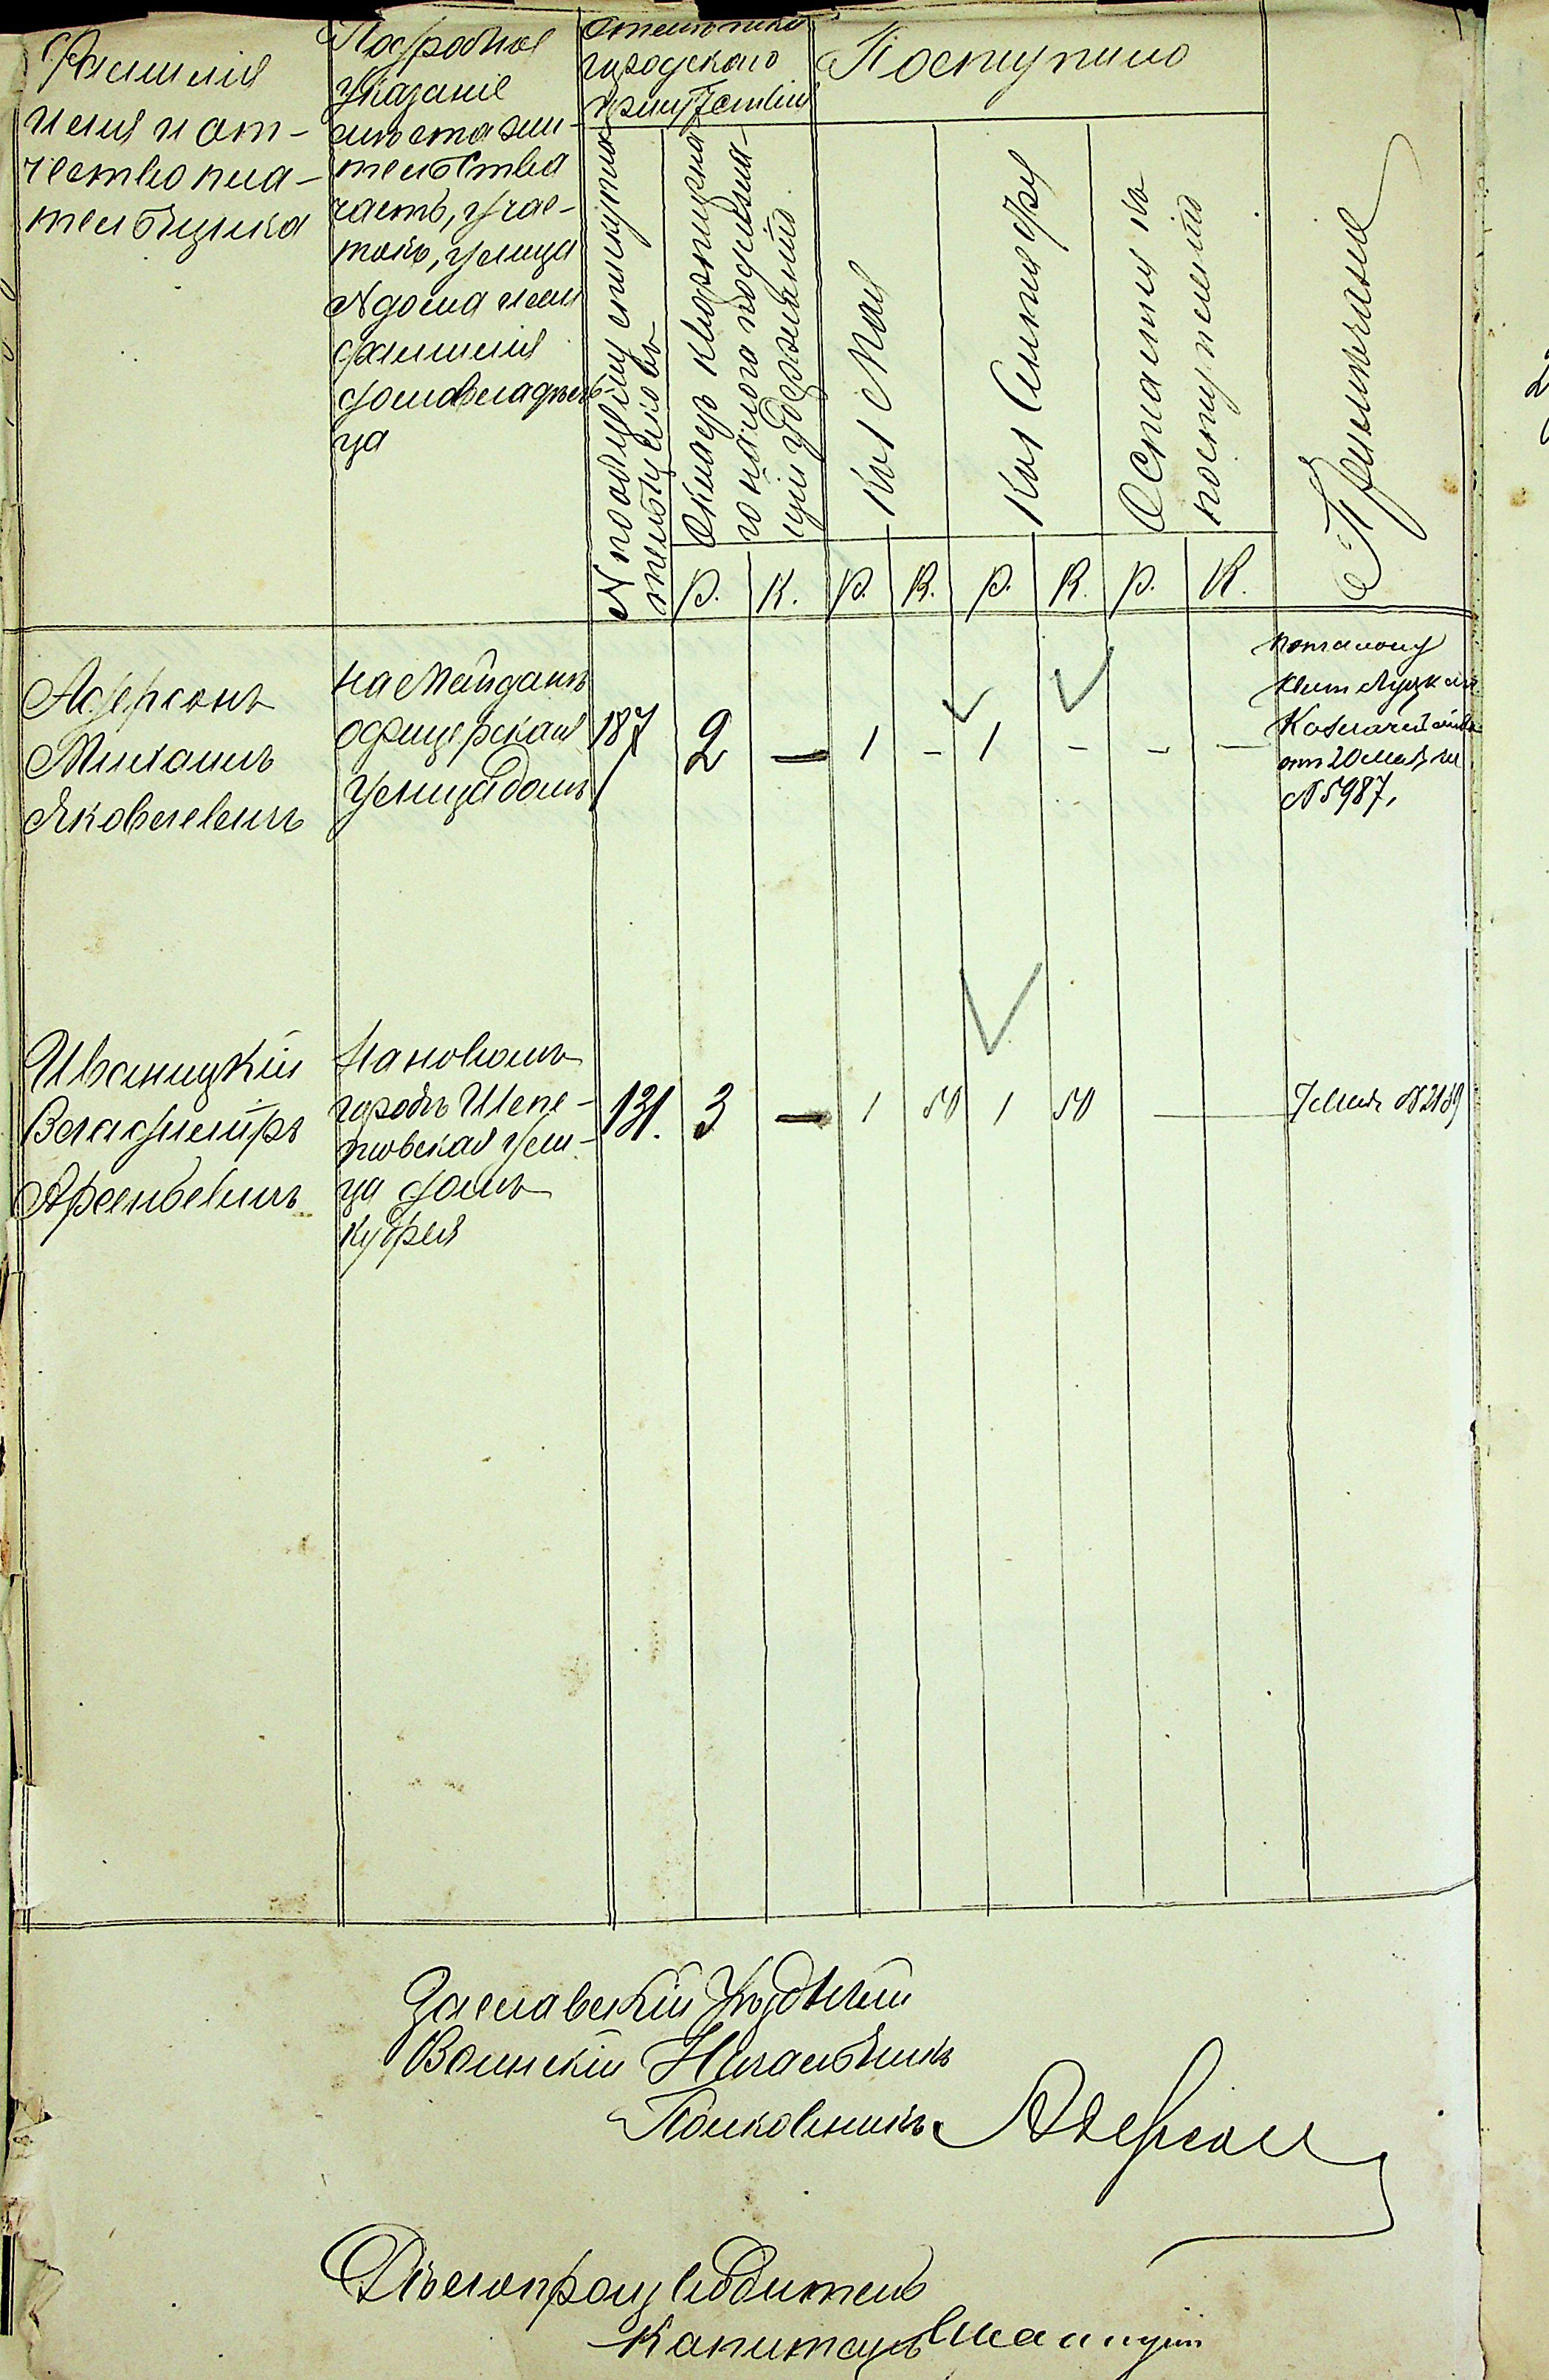 Фамилія
имя и от-
чество пла-
тельщика
Подробное
указаніе
мѣста жи-
тельства
часть, учас-
токъ, улица
N дома или
фамилія
домовладѣль-
ца
Отмѣтки
городского
присутствія
N по общему списку пла-
тельщиковъ
Окладъ квартирна-
го налога подлежа-
щій удержанію
Поступило
Къ 1 Мая
Къ 1 Сентября
Остается къ
поступленію
Примѣчаніе
р. к. р. к. р. к. р. к.
Адерсонъ
Михаилъ
Яковлевичъ
на Майданѣ
офицерская
улица домъ
187 2 — 1 - 1 - - —
Казначейства
от 20 мая
N 5987.
Иваницкій
Владиміръ
Арсеньевичъ
На новомъ
городѣ Шепе-
товская ули-
ца домъ
131. 3 — 1 50 1 50 —
7 Мая N 2189
Заславскій Уѣздный
Воинскій Начальникъ
Полковникъ Адерсон
Дѣлопроизводитель
Капитанъ Иваницкій